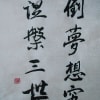 倒夢想究
涅槃三世